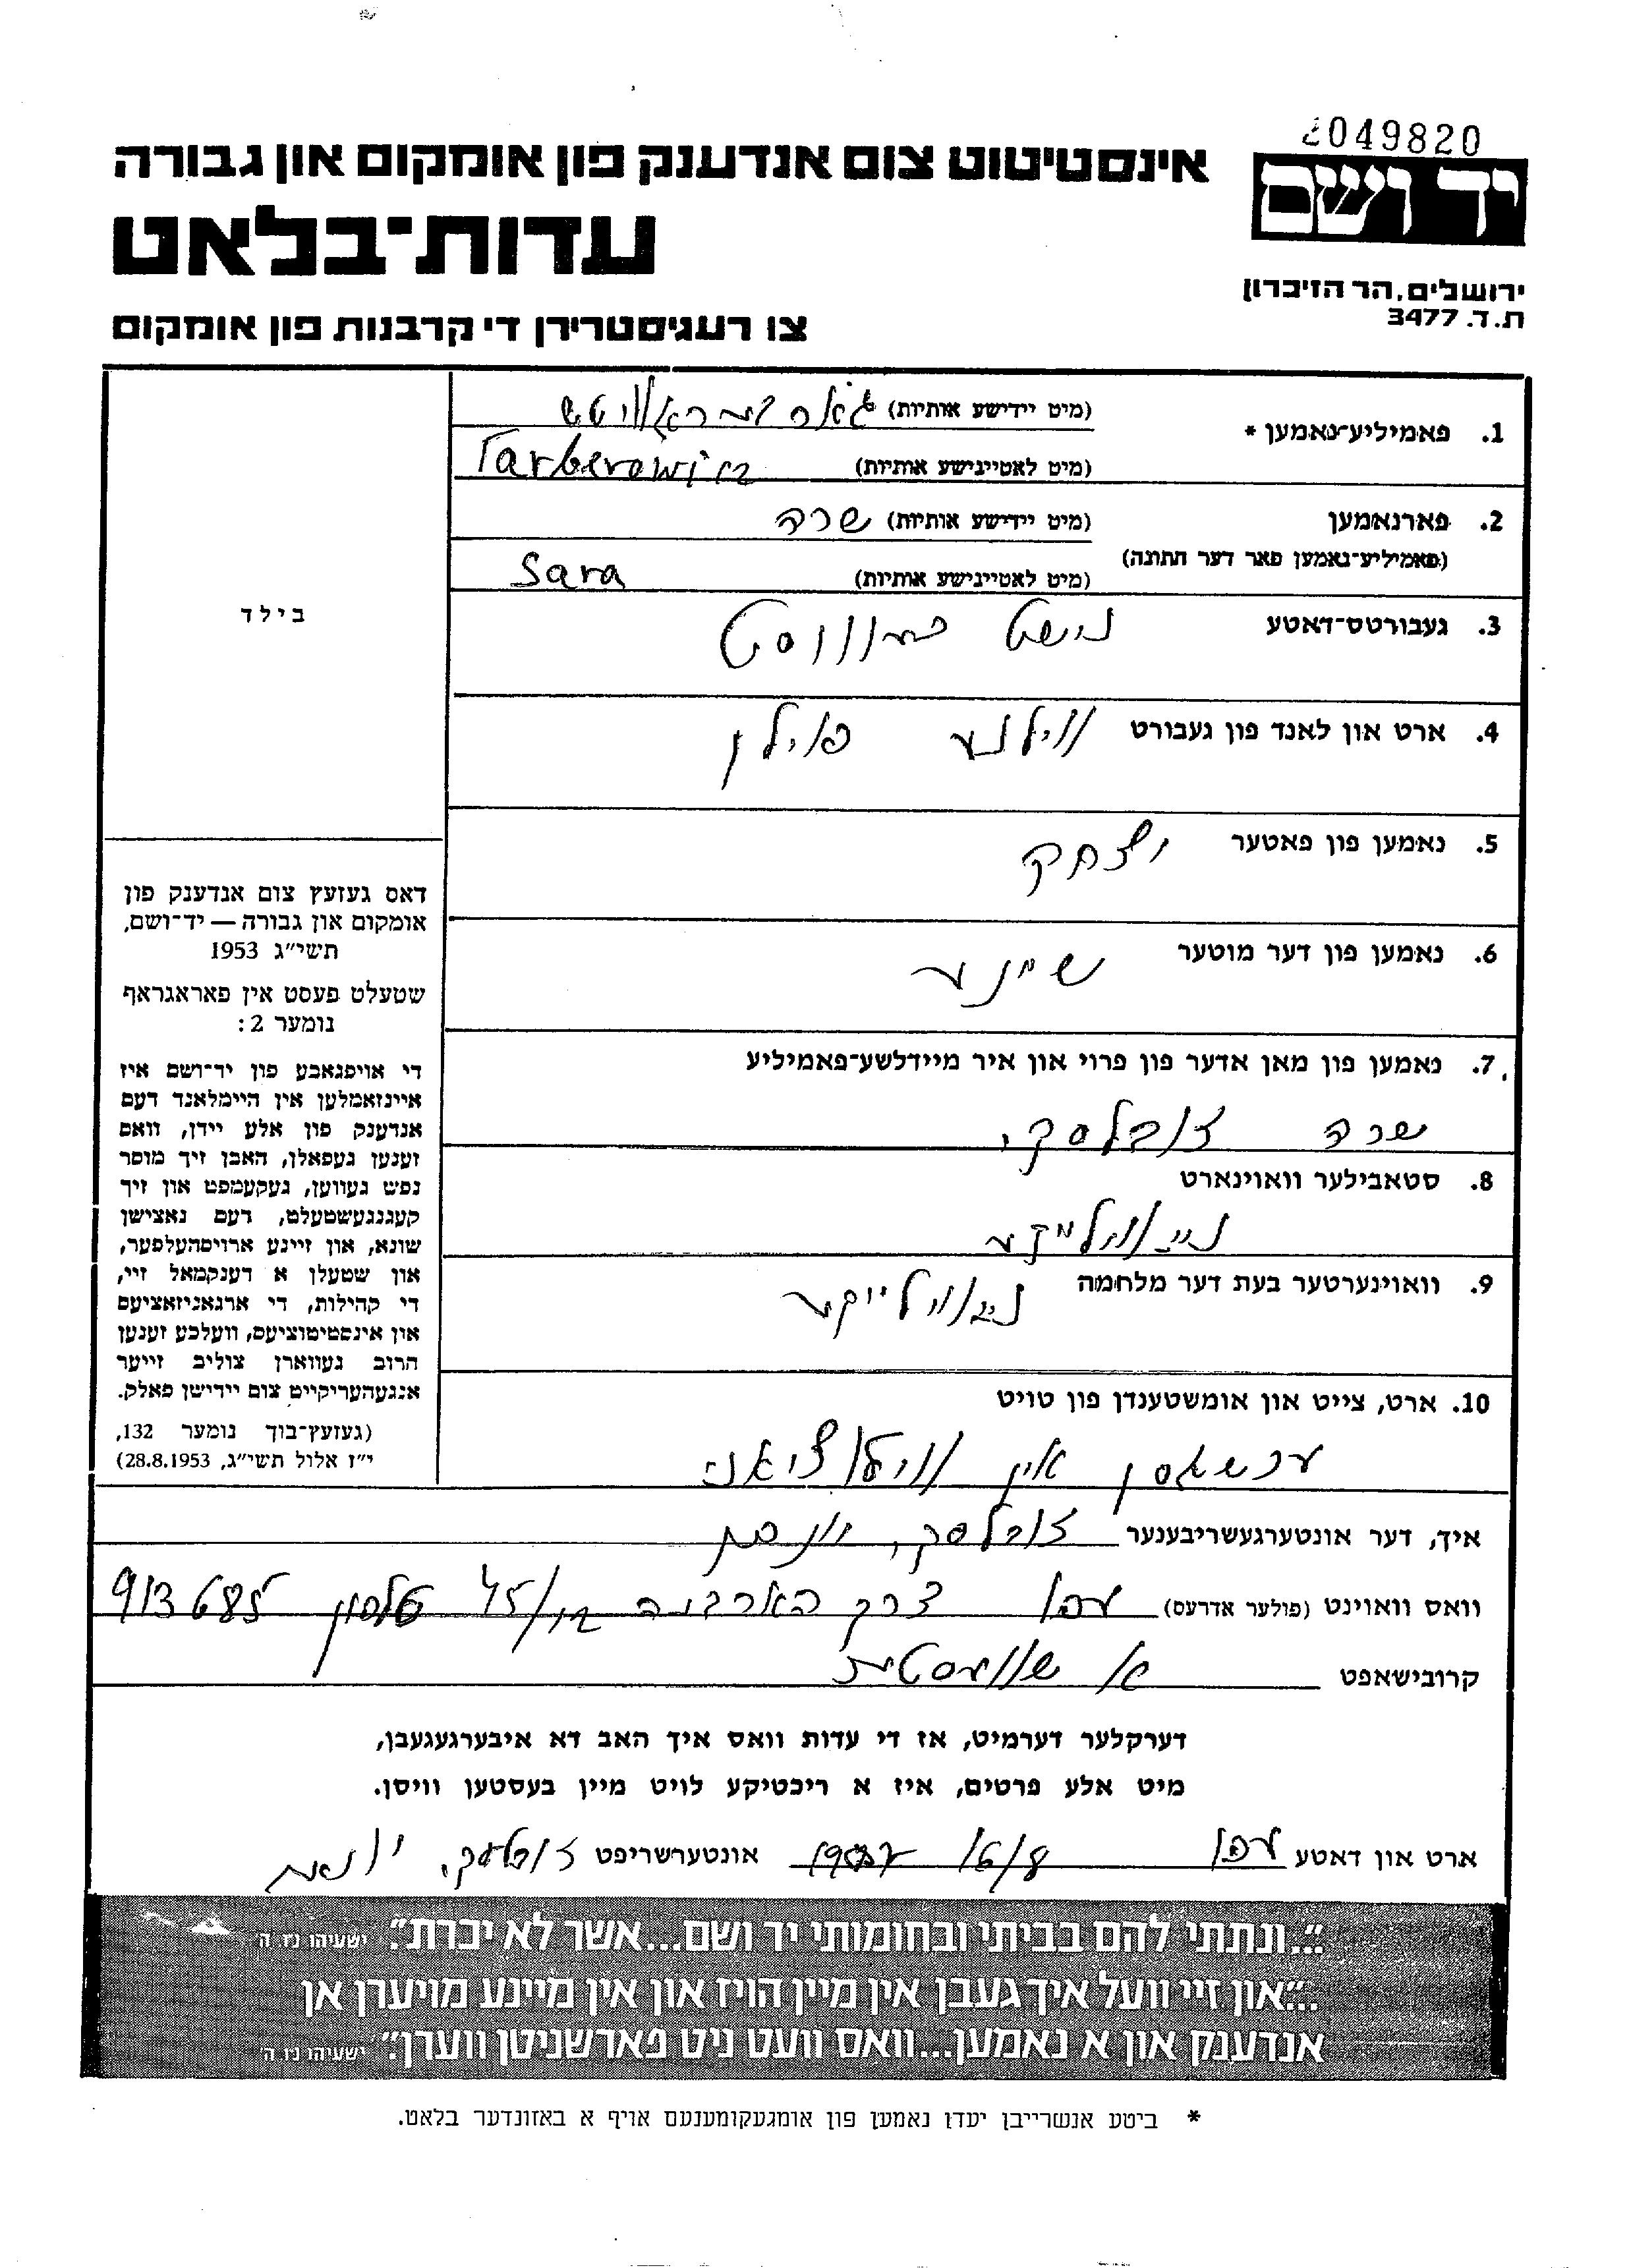 2049820
יד ושם
ירושלים, הר הזיכרון
ת.ד. 3477
אינסטיטוט צום אנדענק פון אומקום און גבורה
עדות־בלאט
צו רעגיסטרירן די קרבנות פון אומקום
1. פאמיליע־נאמען * (מיט יידישע אותיות)
(מיט לאטייניশע אותיות) Tarberowicz
2. פארנאמען (מיט יידישע אותיות) שרה
(פאמיליע־נאמען פאר דער חתונה) (מיט לאטיינישע אותיות) Sara
3. געבורטס־דאטע נישט
4. ארט און לאנד פון געבורט ווילנע פוילן
5. נאמען פון פאטער יצחק
6. נאמען פון דער מוטער שיינע
7. נאמען פון מאן אדער פון פרוי און איר מיידלשע־פאמיליע
שרה
8. סטאבילער וואוינארט
נייווילייקע
9. וואוינערטער בעת דער מלחמה נייווילייקע
10. ארט, צייט און אומשטענדן פון טויט
אין
בילד
דאס געזעץ צום אנדענק פון
אומקום און גבורה — יד־ושם,
תשי״ג 1953
שטעלט פעסט אין פאראגראף
נומער 2:
די אויפגאבע פון יד־ושם איז
איינזאמלען אין היימלאנד דעם
אנדענק פון אלע יידן, וואס
זענען געפאלן, האבן זיך מוסר
נפש געווען, געקעמפט און זיך
קעגנגעשטעלט, דעם נאצישן
שונא, און זיינע ארויסהעלפער,
און שטעלן א דענקמאל זיי,
די קהילות, די ארגאניזאציעס
און אינסטיטוציעס, וועלכע זענען
הרוב געווארן צוליב זייער
אנגעהעריקייט צום יידישן פאלק.
(געזעץ־בוך נומער 132,
י״ז אלול תשי״ג, 28.8.1953)
איך, דער אונטערגעשריבענער
וואס וואוינט (פולער אדרעס) עכו דרך הארבעה 45/ טלפון 913685
קרובישאפט א
דערקלער דערמיט, אז די עדות וואס איך האב דא איבערגעגעבן,
מיט אלע פרטים, איז א ריכטיקע לויט מיין בעסטען וויסן.
ארט און דאטע עכו 16/8 אונטערשריפט
״...ונתתי להם בביתי ובחומותי יד ושם...אשר לא יכרת״. ישעיהו נו, ה
...״און זיי וועל איך געבן אין מיין הויז און אין מיינע מויערן אן
אנדענק און א נאמען...וואס וועט ניט פארשניטן ווערן״. ישעיהו נו, ה
* ביטע אנשרייבן יעדן נאמען פון אומגעקומענעם אויף א באזונדער בלאט.